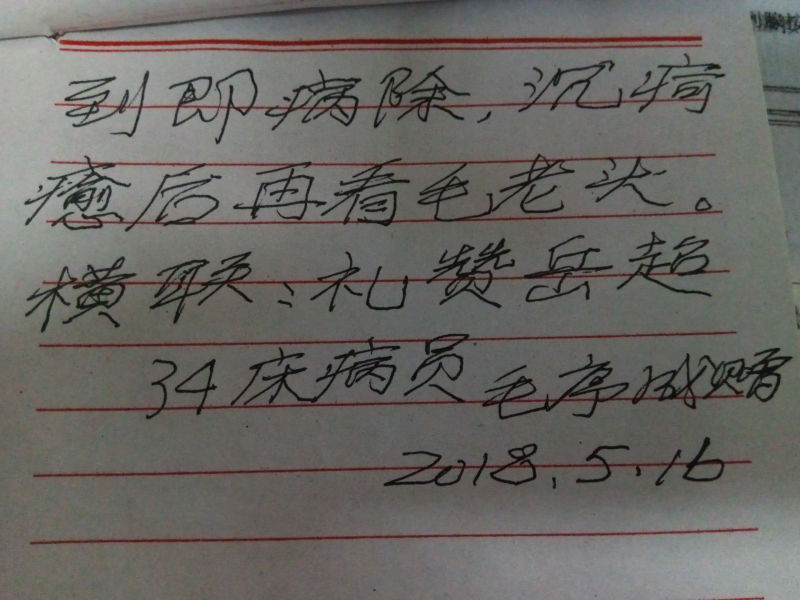 到即病除，沉疴
癒后再看毛老头。
横联：礼赞岳超
34床病员 毛序成赠
2018.5.16